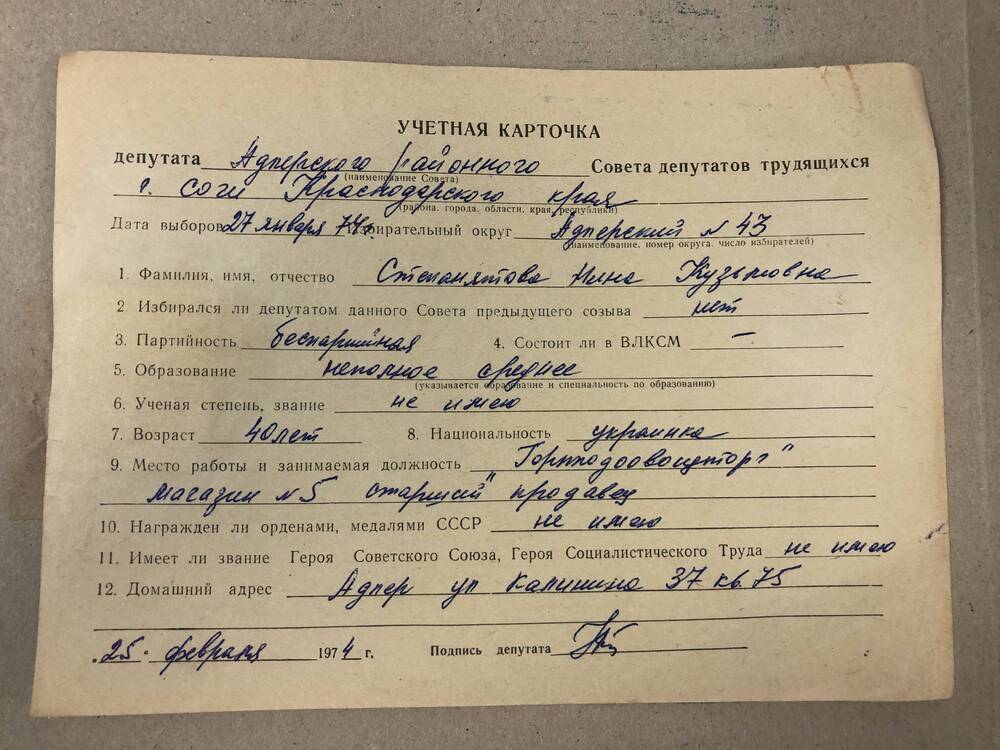 УЧЕТНАЯ КАРТОЧКА
депутата Адлерского районного Совета депутатов трудящихся
(наименование Совета)
г. Сочи Краснодарского края
(района, города, области, края, республики)
Дата выборов 27 января 74 г. Избирательный округ Адлерский № 43
(наименование, номер округа, число избирателей)
1. Фамилия, имя, отчество Нина Кузьмовна
2. Избирался ли депутатом данного Совета предыдущего созыва нет
3. Партийность беспартийная 4. Состоит ли в ВЛКСМ —
5. Образование неполное среднее
(указывается образование и специальность по образованию)
6. Ученая степень, звание не имею
7. Возраст 40 лет 8. Национальность украинка
9. Место работы и занимаемая должность "Горплодоовощторг"
магазин № 5 старший продавец
10. Награжден ли орденами, медалями СССР не имею
11. Имеет ли звание Героя Советского Союза, Героя Социалистического Труда не имею
12. Домашний адрес Адлер ул Калинина 37 кв. 75
25 февраля 1974 г. Подпись депутата